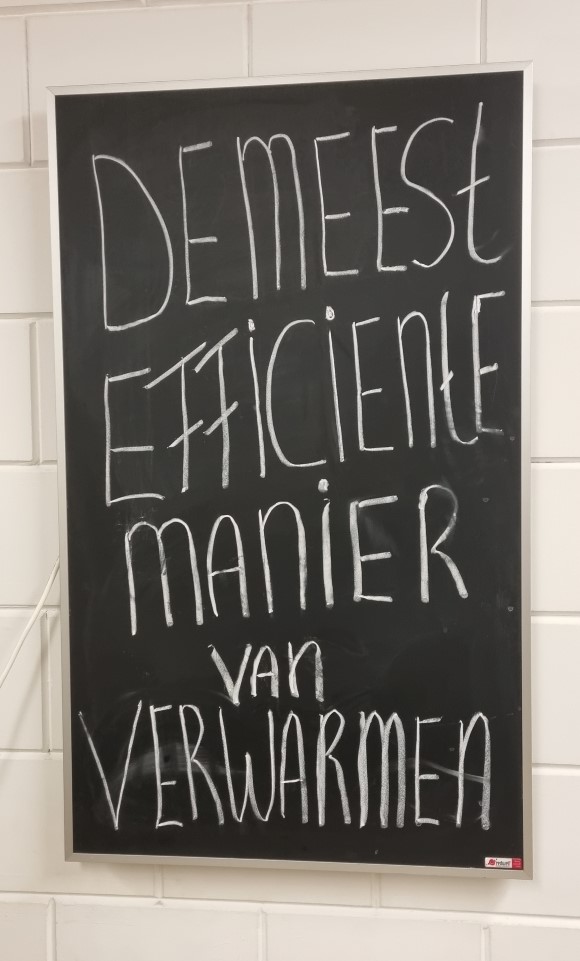 DE MEESt
EFFiCiENtE
MANiER
VAN
VERWARMEN